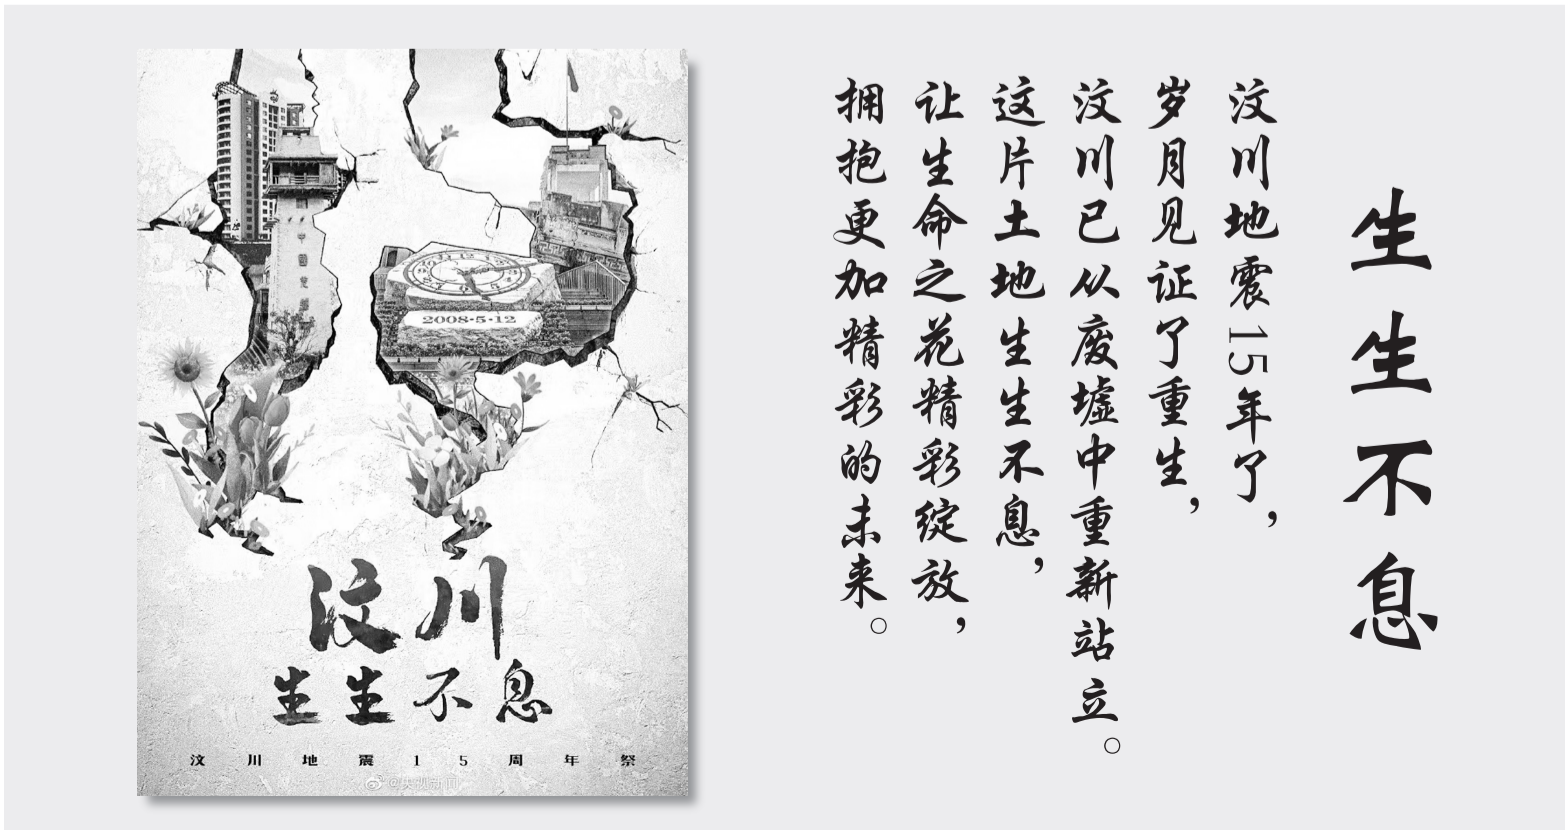 生生不息
汶川地震15年了，
岁月见证了重生，
汶川已从废墟中重新站立。
这片土地生生不息，
让生命之花精彩绽放，
拥抱更加精彩的未来。
2008·5·12
汶川
生生不息
汶川地震15周年祭
@央视新闻